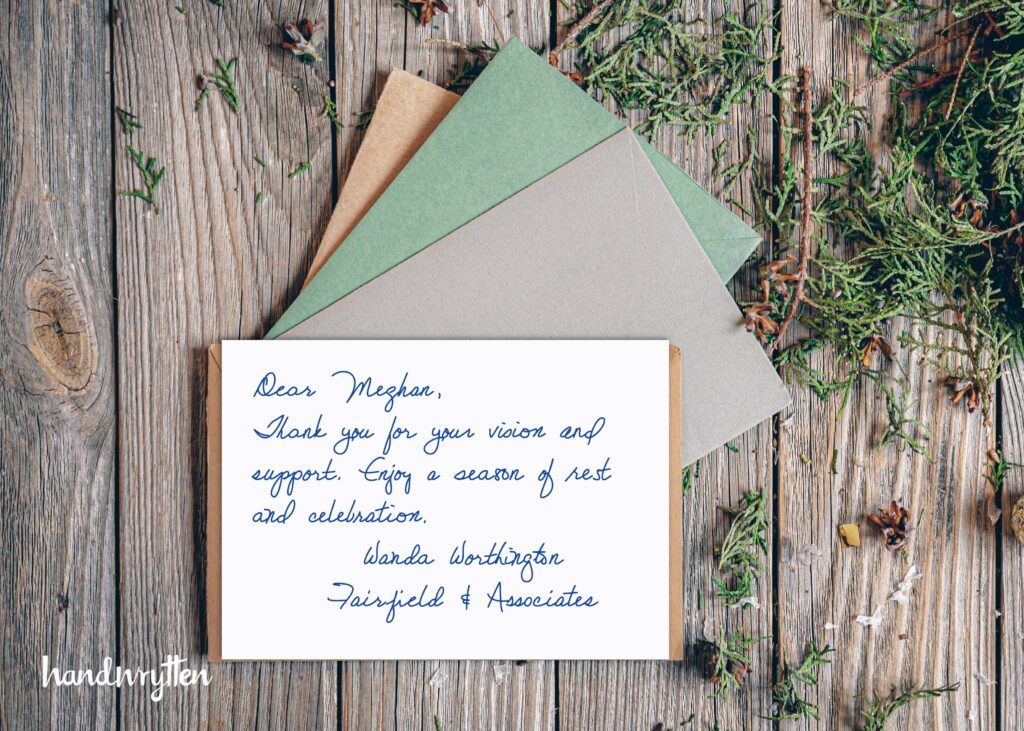 Dear Meghan,
Thank you for your vision and
support. Enjoy a season of rest
and celebration.
Wanda Worthington
Fairfield & Associates
handwrytten